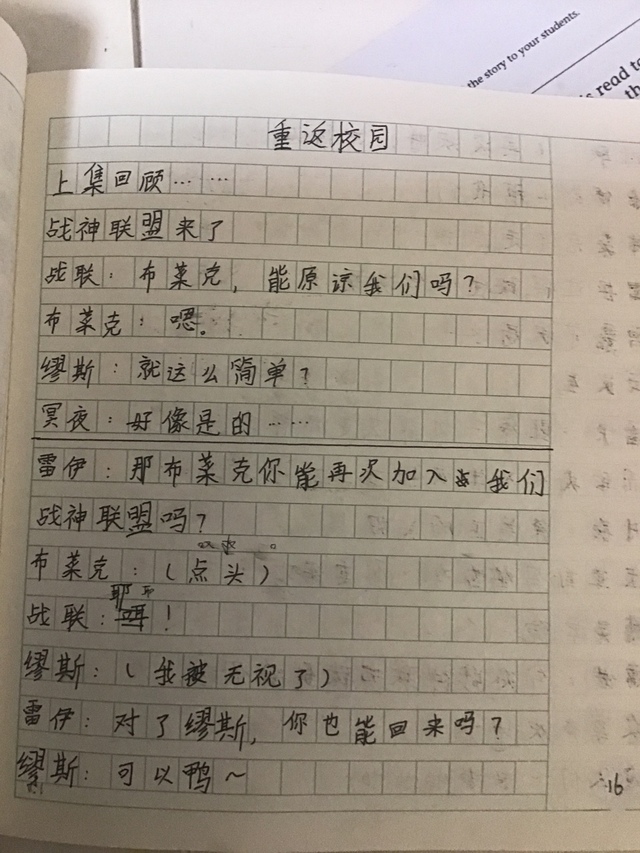 the story to your students.
is read to
th
重返校园
上集回顾……
战神联盟来了
战联：布莱克，能原谅我们吗？
布莱克：嗯。
缪斯：就这么简单？
冥夜：好像是的……
雷伊：那布莱克你能再次加入我们
战神联盟吗？
布莱克：（点头）
战联：耶！
缪斯：（我被无视了）
雷伊：对了缪斯，你也能回来吗？
缪斯：可以鸭～
16